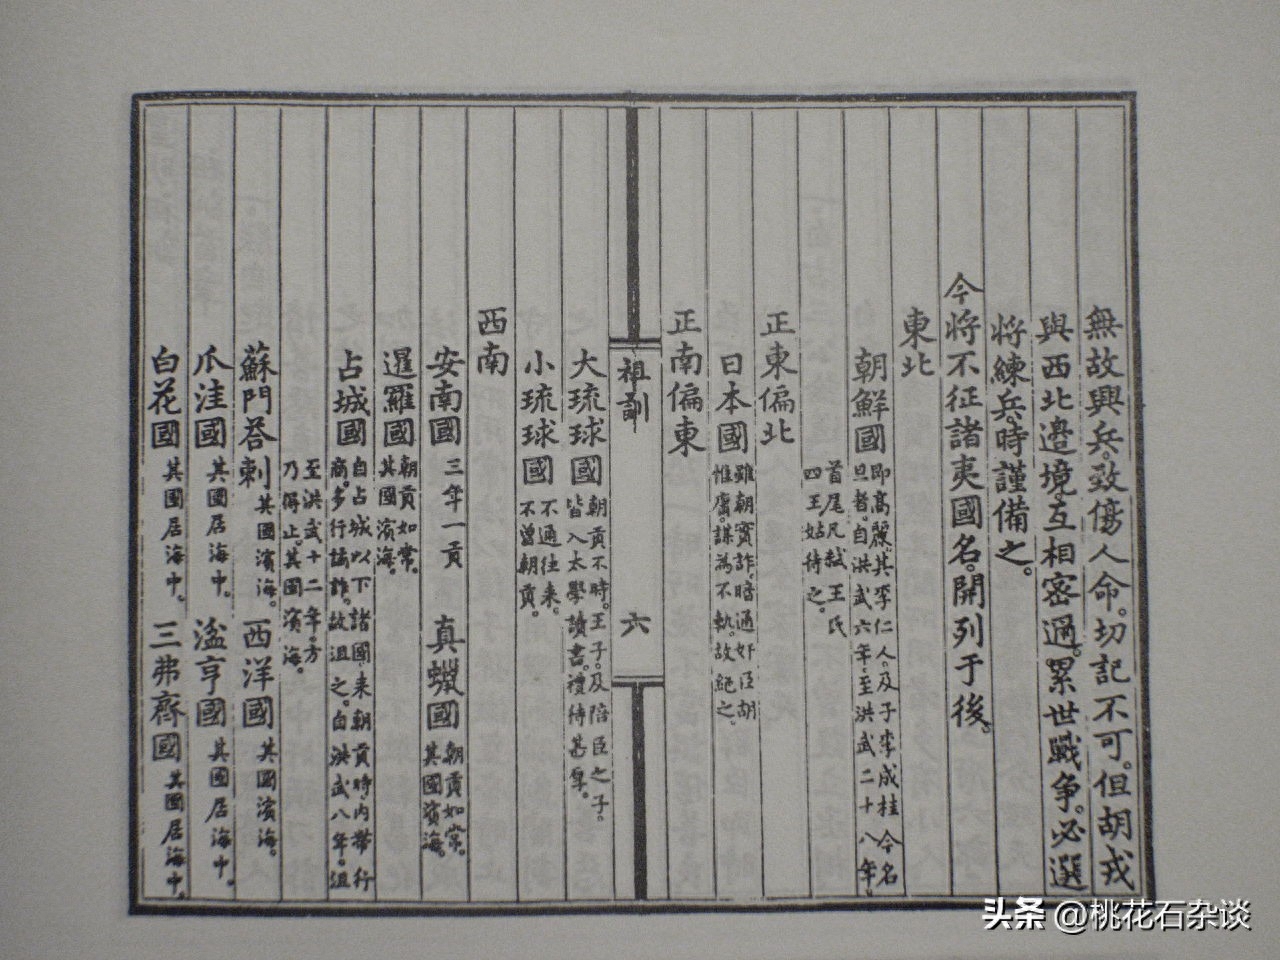 無故興兵致傷人命。切記不可。但胡戎
與西北邊境。互相密邇。累世戰爭。必選
將練兵。時謹備之。
今將不征諸夷國名。開列于後。
東北
朝鮮國
即高麗。其李仁人。及子李成桂今名
旦者。自洪武六年。至洪武二十八年。
首尾凡弑王氏
四王。姑待之。
正東偏北
日本國
雖朝實詐。暗通奸臣胡
惟庸。謀為不軌。故絕之。
正南偏東
祖訓
六
大琉球國
朝貢不時。王子。及陪臣之子。
皆入太學讀書。禮待甚厚。
小琉球國
不通往來。
不曾朝貢。
西南
安南國
三年一貢
真蠟國
朝貢如常。
其國濱海。
暹羅國
朝貢如常。
其國濱海。
占城國
自占城以下諸國。來朝貢時。內帶行
商。多行譎詐。故沮之。自洪武八年。沮
至洪武十二年。方
乃得止。其國濱海。
蘇門荅剌
其國濱海。
西洋國
其國濱海。
爪洼國
其國居海中。
湓亨國
其國居海中。
白花國
其國居海中。
三弗齊國
其國居海中。
头条 @桃花石杂谈